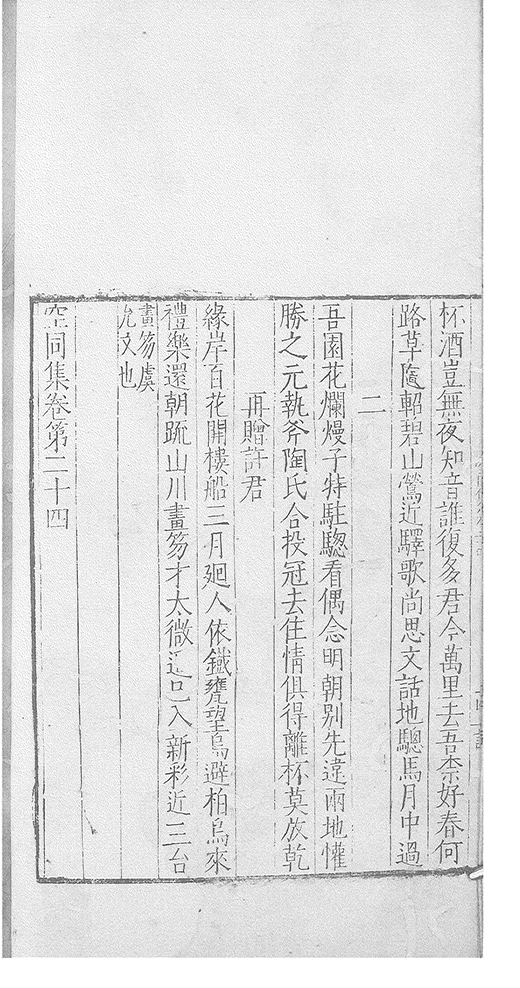 杯酒豈無夜知音誰復多君今萬里去吾柰好春何
路草隨軺碧山鶯近驛歌尚思文話地驄馬月中過
二
吾園花爛熳子特駐驄看偶念明朝别先違兩地懽
勝之元執斧陶氏合投冠去住情俱得離杯莫放乾
再贈許君
緣岸百花開樓船三月廻人依鐵甕望烏避柏烏來
禮樂還朝疏山川畫笏才太微入新彩近三台
畫笏虞
允文也
空同集卷第二十四